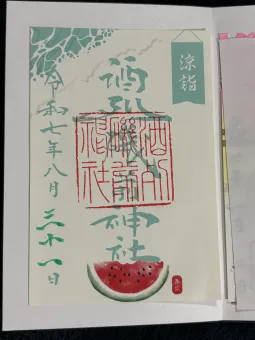 涼詣
酒列磯前神社
酒列
磯前
神社
令和七年八月三十一日